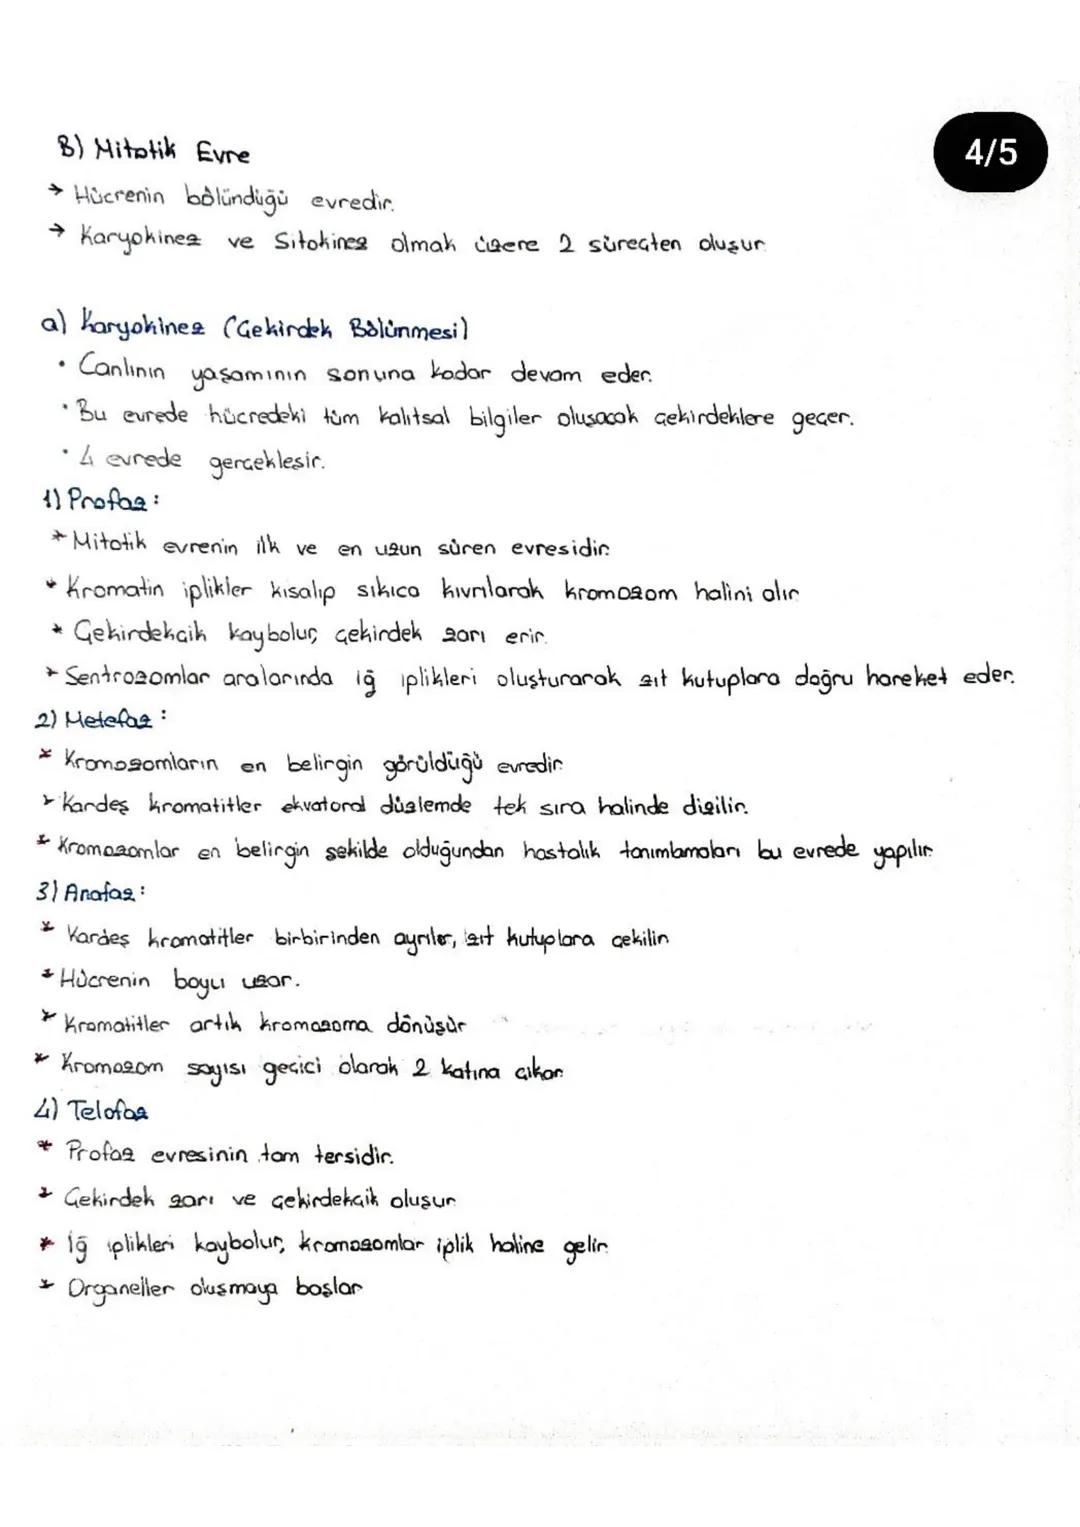 B) Mitotik Evre
4/5
→ Hücrenin bölündüğü evredir.
→ Karyokinez ve Sitokinez olmak üzere 2 süreçten oluşur.
a) Karyokinez (Çekirdek Bölünmesi)
• Canlının yaşamının sonuna kadar devam eder.
• Bu evrede hücredeki tüm kalıtsal bilgiler oluşacak çekirdeklere geçer.
• 4 evrede gerçekleşir.
1) Profaz:
* Mitotik evrenin ilk ve en uzun süren evresidir.
* Kromatin iplikler kısalıp sıkıca kıvrılarak kromozom halini alır.
* Çekirdekçik kaybolur, çekirdek zarı erir.
* Sentrozomlar aralarında iğ iplikleri oluşturarak zıt kutuplara doğru hareket eder.
2) Metefaz:
* Kromozomların en belirgin görüldüğü evredir.
* Kardeş kromatitler ekvatoral düzlemde tek sıra halinde dizilir.
* Kromozomlar en belirgin şekilde olduğundan hastalık tanımlamaları bu evrede yapılır.
3) Anafaz:
* Kardeş kromatitler birbirinden ayrılır, zıt kutuplara çekilir.
* Hücrenin boyu uzar.
* Kromatitler artık kromozoma dönüşür
* Kromozom sayısı geçici olarak 2 katına çıkar.
4) Telofaz
* Profaz evresinin tam tersidir.
* Çekirdek zarı ve çekirdekçik oluşur.
* İğ iplikleri kaybolur, kromozomlar iplik haline gelir.
* Organeller oluşmaya başlar